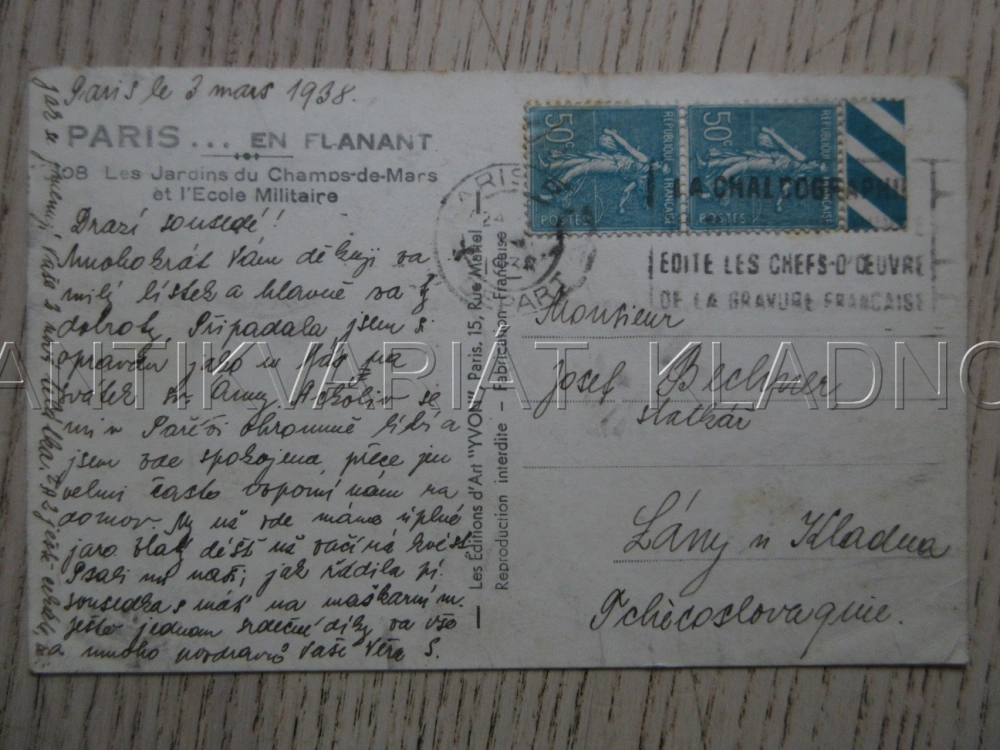 Paris le 3 mars 1938.
PARIS... EN FLANANT
108 Les Jardins du Champs-de-Mars
et l'Ecole Militaire
Drazí sousedé!
Mnohokrát Vám děkuji za
milý lístek a hlavně za ty
dobroty. Připadala jsem si
opravdu jako u Vás na
svátek sv. Anny. Ačkoliv se
mi v Paříži ohromně líbí a
jsem zde spokojena, přece jen
velmi často vzpomínám na
domov. My už zde máme úplné
jaro
déšť už začíná kvést.
Psali mi naši, jak řádila pí.
sousedka s máť na maškarním.
Ještě jednou srdečné díky za vše
a mnoho pozdravů Vaší Věra S.
Les Editions d'Art "YVON", Paris, 15, Rue Martel
Reproduction interdite - Fabrication Française
50c
REPUBLIQUE FRANÇAISE
POSTES
50c
REPUBLIQUE FRANÇAISE
POSTES
PARIS
LA CHALCOGRAPHIE
EDITE LES CHEFS-D'ŒUVRE
DE LA GRAVURE FRANCAISE
Monsieur
Josef Bechyner
statkář
Lány u Kladna
Tchécoslovaquie.
ANTIKVARIAT KLADNO